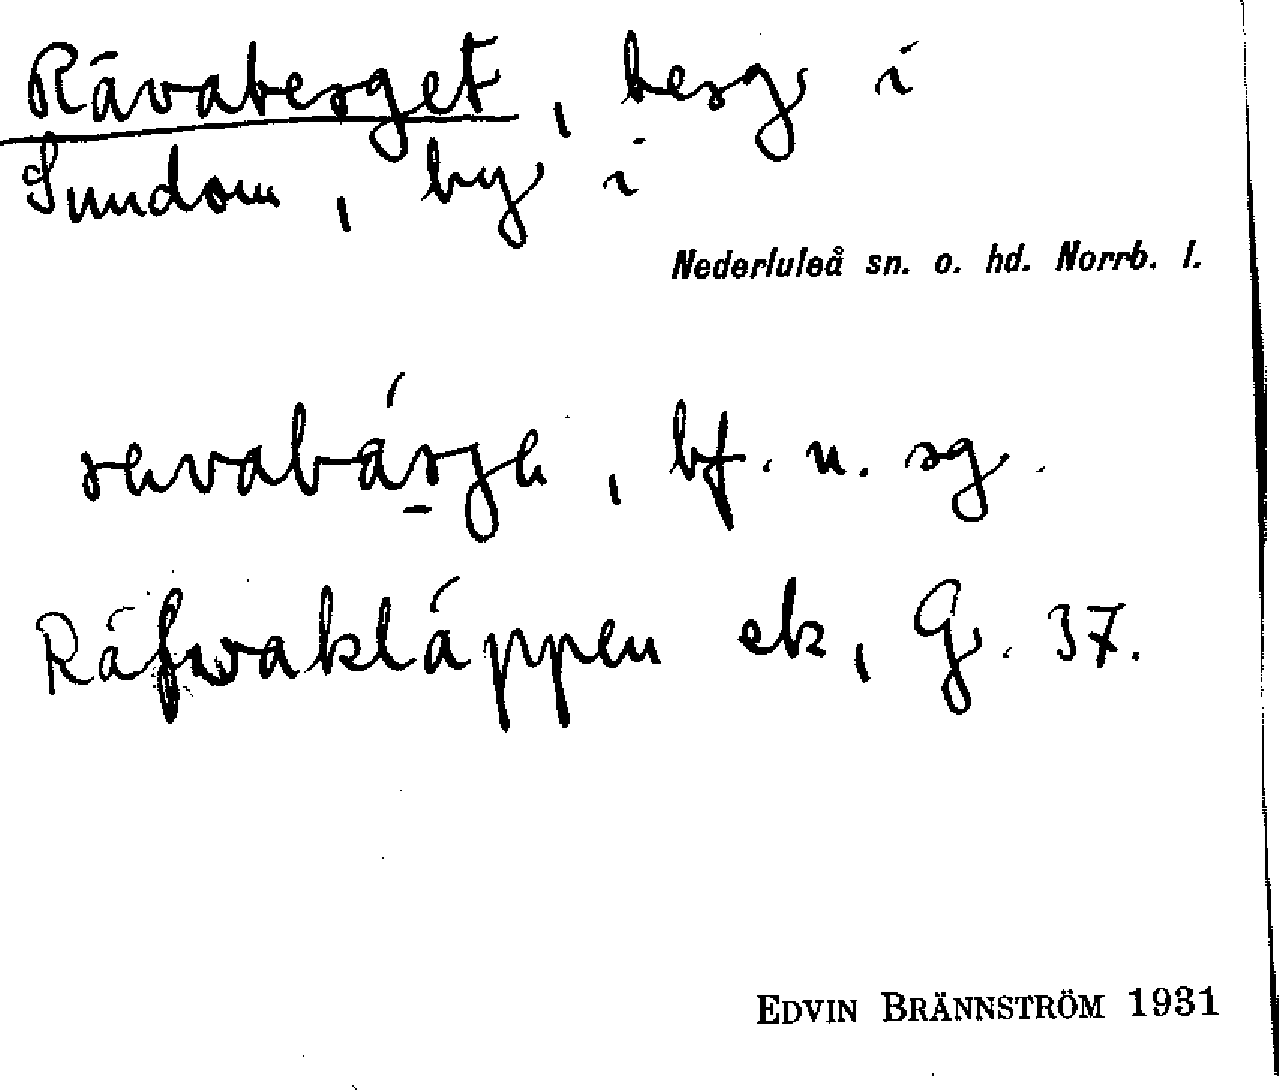 Rävaberget, berg i
Sundom, by i
Nederluleå sn. o. hd. Norrb. l.
bf. n. sg.
Räfwakläppen ek, G. 37.
EDVIN BRÄNNSTRÖM 1931